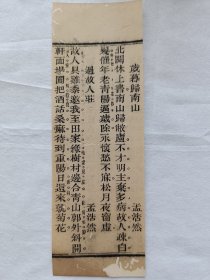 歲暮歸南山
孟浩然
北闕休上書南山歸敝廬不才明主棄多病故人疎白
髮催年老青陽逼歲除永懷愁不寐松月夜窗虛
過故人莊
孟浩然
故人具雞黍邀我至田家綠樹村邊合青山郭外斜開
軒面場圃把酒話桑麻待到重陽日還來就菊花